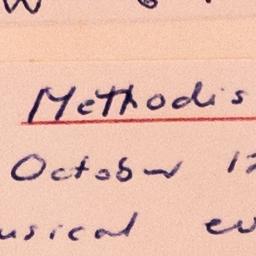 Methodis
October 12
usical ev